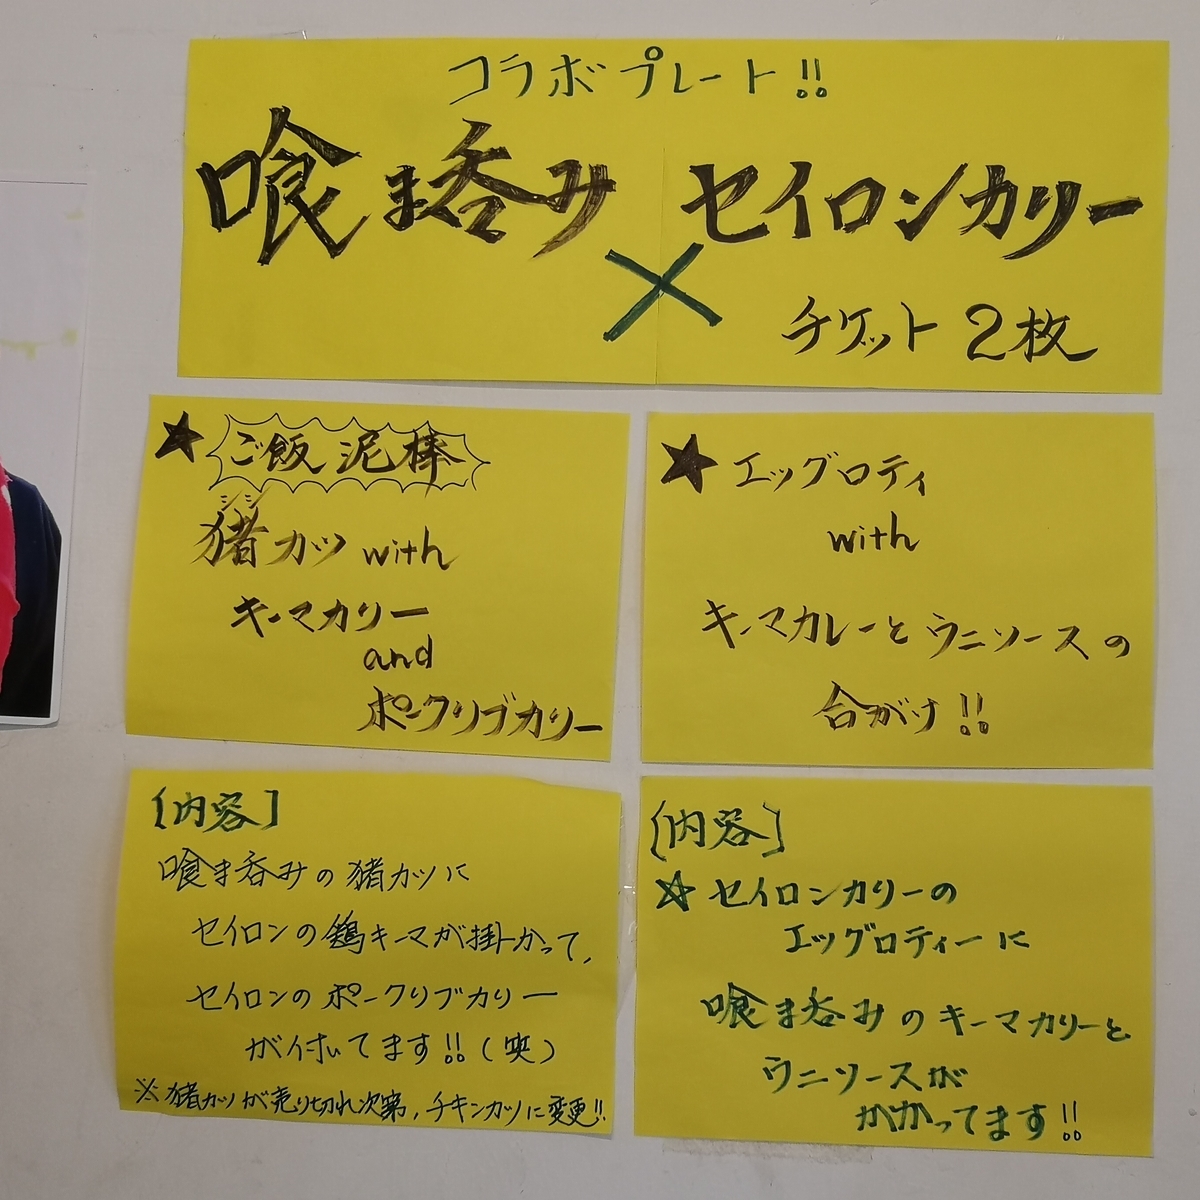 コラボプレート!!
喰ま呑み × セイロンカリー
チケット 2枚
★ ご飯泥棒
シシ
猪カツ with
キーマカリー
and
ポークリブカリー
★ エッグロティ
with
キーマカレーとウニソースの
合がけ!!
[内容]
喰ま呑みの猪カツに
セイロンの鶏キーマが掛かって、
セイロンのポークリブカリー
が付いてます!!(笑)
※猪カツが売り切れ次第、チキンカツに変更!!
[内容]
☆ セイロンカリーの
エッグロティーに
喰ま呑みのキーマカリーと
ウニソースが
かかってます!!